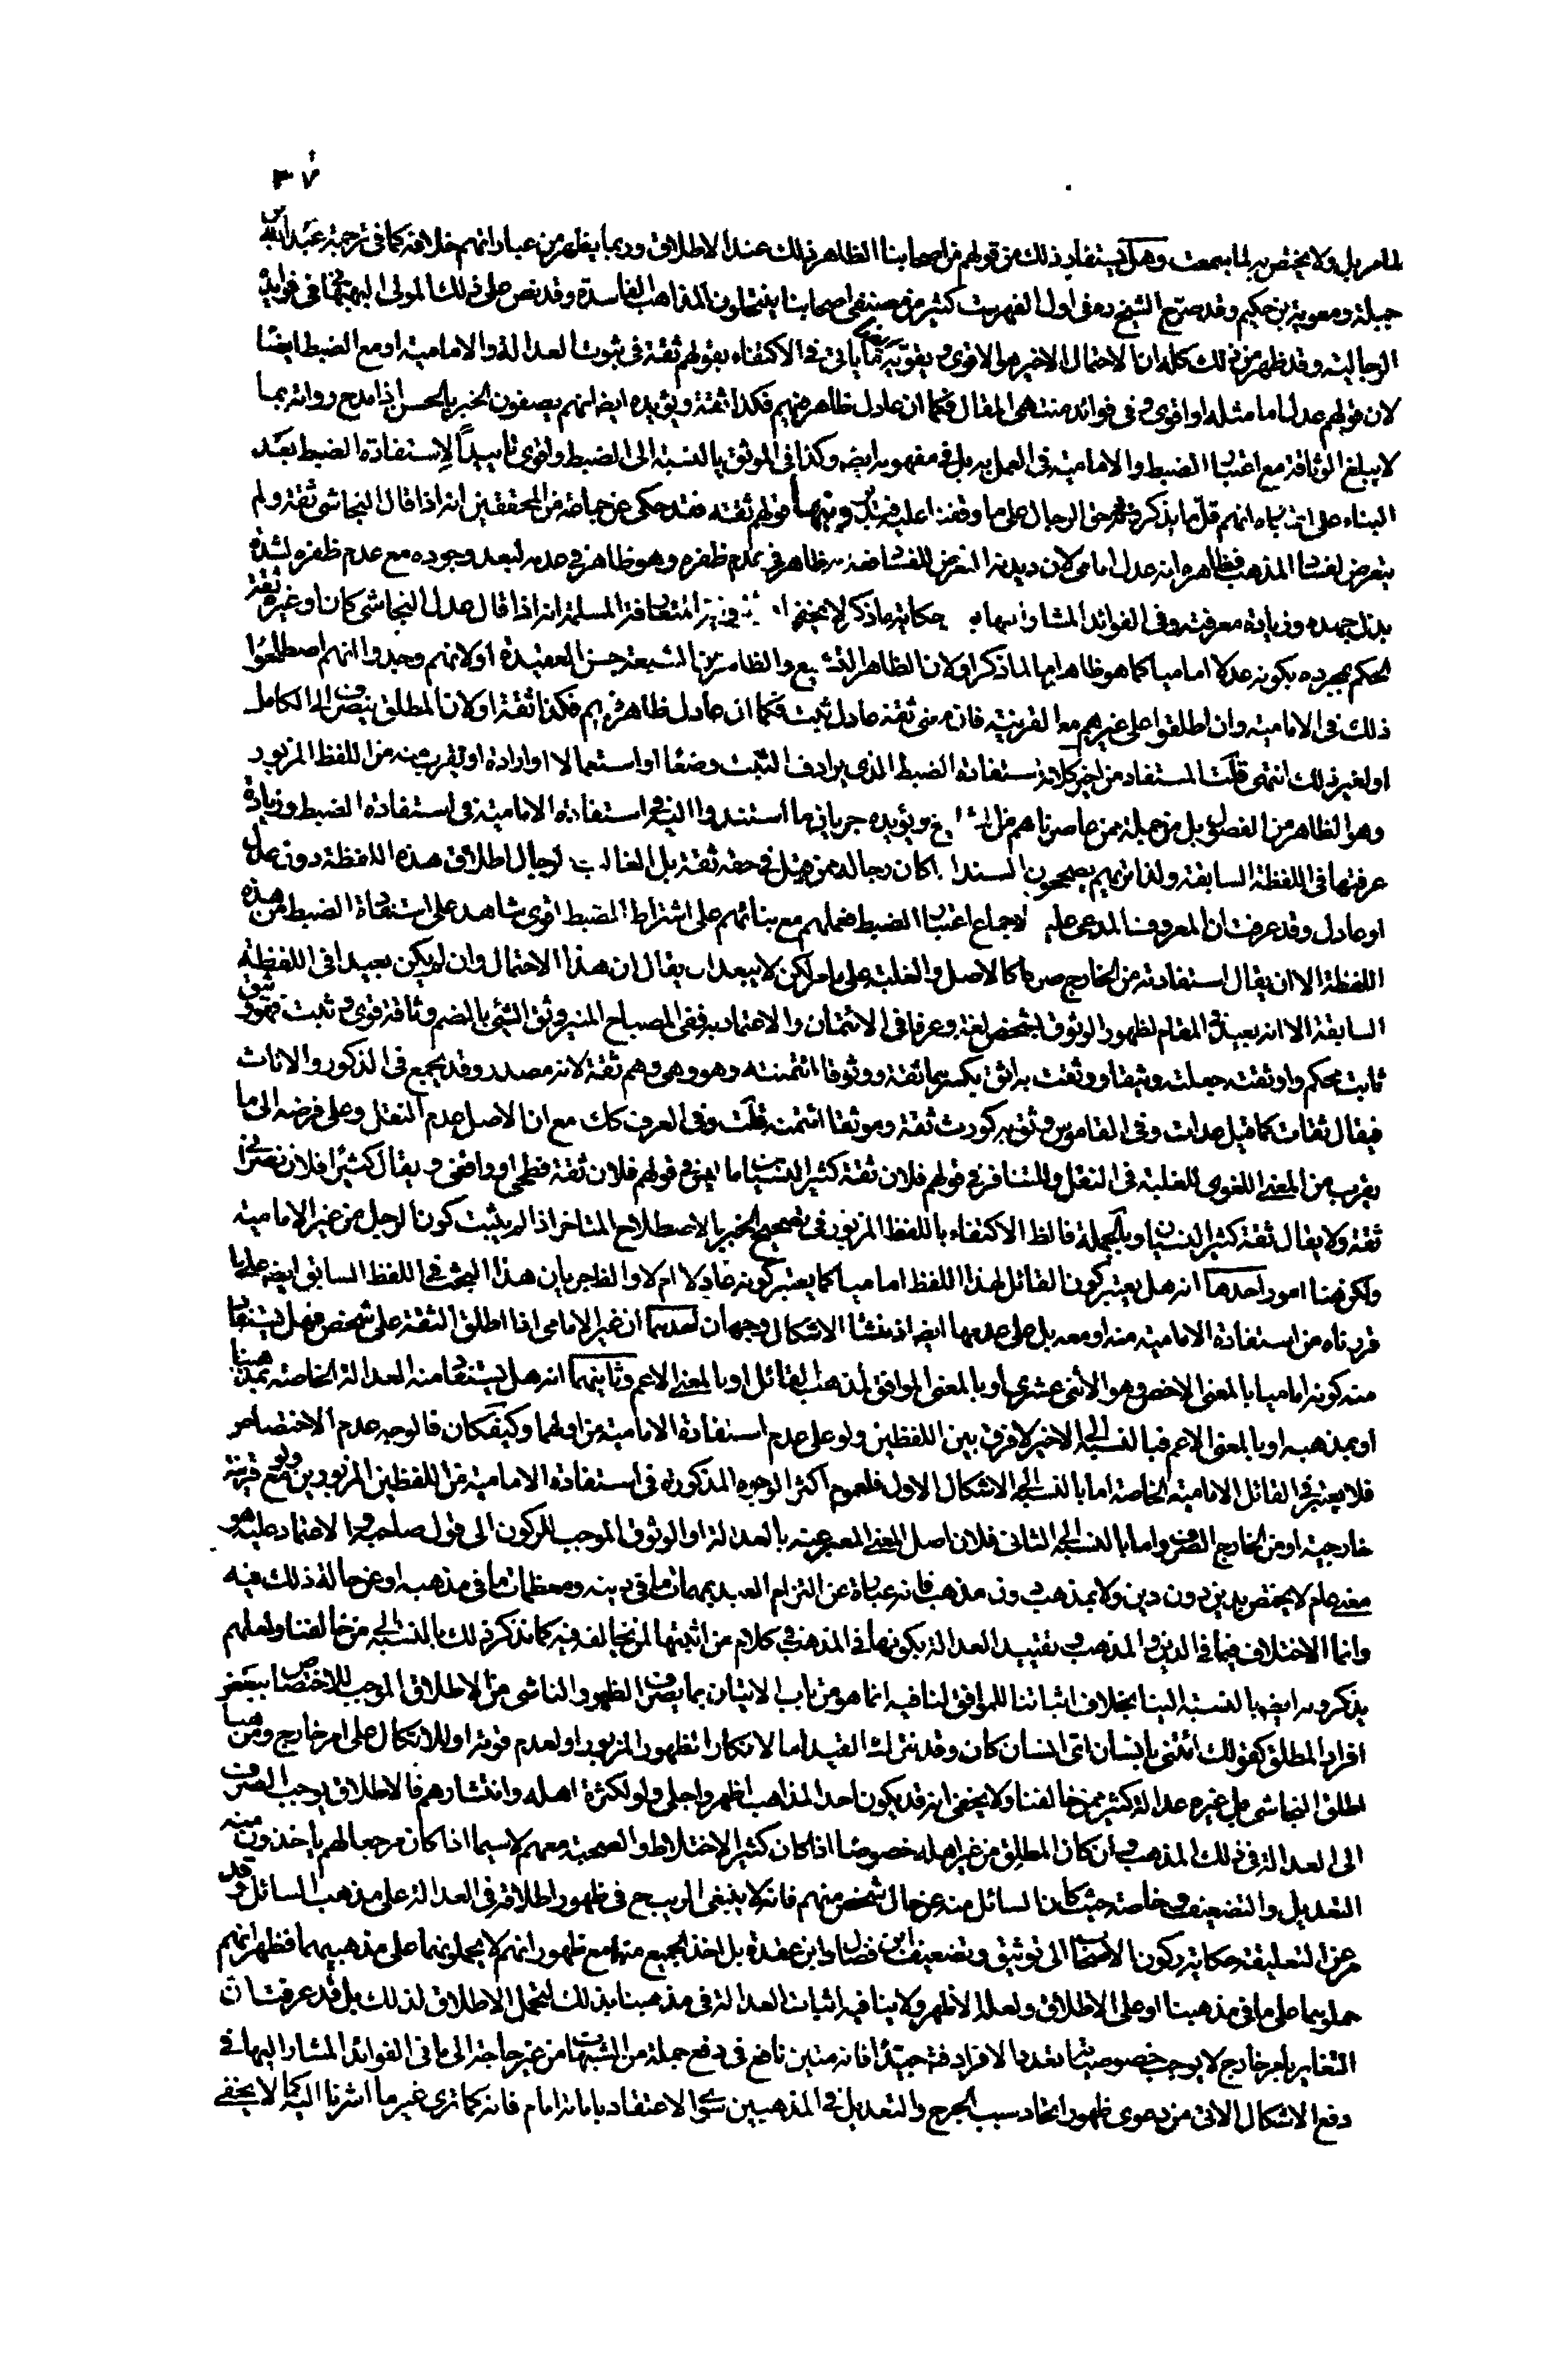 ٣٧
لمامر بل ولا يختص به لما سمعت وهل يستفاد ذلك من قولهم من اصحابنا الظاهر ذلك عند الاطلاق وربما يظهر من عباراتهم خلافه كما فى ترجمة عبد الله بن
جبلة ومعوية بن حكيم وقد صرح الشيخ ره فى اول الفهرست كثير من مصنفى اصحابنا ينتحلون المذاهب الفاسدة وقد نص على ذلك المولى البهبهانى فى فوايده
الرجالية وقد ظهر من ذلك كله ان الاحتمال الاخير هو الاقوى ويقويه ما ياتى فى الاكتفاء بقولهم ثقة فى ثبوت العدالة والامامية او مع الضبط ايضا
لان قولهم عدل اما مثله او اقوى و فى فوائد منتهى المقال فكما ان عادل ظاهر فيهم فكذا ثقة ويؤيده ايضا انهم يصفون الخبر بالحسن اذا مدح رواته بما
لا يبلغ الوثاقة مع اعتبار الضبط والامامية فى العمل به بل فى مفهومه ايضا وكذا فى الموثق بالنسبة الى الضبط واقوى تاييدا لاستفادة الضبط بعد
البناء على اعتباره انهم قل ما يذكرونه فى حق الرجال على ما وقفنا عليه فتدبر ومنها قولهم ثقة فقد حكى عن جماعة من المحققين انه اذا قال النجاشى ثقة ولم
يتعرض لفساد المذهب فظاهره انه عدل امامى لان ديدنه التعرض للفساد فعدمه ظاهر فى عدم ظفره وهو ظاهر فى عدمه لبعد وجوده مع عدم ظفره لشدة
بذل جهده وزيادة معرفته وفى الفوائد المشار اليها حكاية ما ذكر لا يخفى ان الرواية المتعارفة المسلمة انه اذا قال عدل النجاشى كان او غيره ثقة
الحكم بمجرده بكونه عدلا اماميا كما هو ظاهر اما لما ذكر او لان الظاهر التشيع والظاهر من الشيعة حسن العقيدة او لانهم وجدوا انهم اصطلحوا
ذلك فى الامامية وان اطلقوا على غيرهم مع القرينة فان معنى ثقة عادل ثبت فكما ان عادل ظاهر فيهم فكذا ثقة او لان المطلق ينصرف الى الكامل
او لغير ذلك انتهى قلت المستفاد من اخير كلامه استفادة الضبط الذى يرادف الثبت وضعا او استعمالا او ارادة او بقرينة من اللفظ المزبور
وهو الظاهر من الفصول بل من جملة ممن عاصرناهم من المشايخ ويؤيده جريان ما استندوا اليه فى استفادة الامامية فى استفادة الضبط وزيادة
عرفتها فى اللفظة السابقة ولذا تريهم يصححون السند اذا كان رجاله ممن قيل فى حقه ثقة بل الغالب فى الرجال اطلاق هذه اللفظة دون عدل
او عادل وقد عرفت ان المعروف المدعى عليه الاجماع اعتبار الضبط فعملهم مع بنائهم على اشتراط الضبط اقوى شاهد على استفادة الضبط من هذه
اللفظة الا ان يقال استفادته من الخارج صرفا كالاصل والغلبة على ما مر لكن لا يبعد ان يقال ان هذا الاحتمال وان لم يكن بعيدا فى اللفظة
السابقة الا انه بعيد فى المقام لظهور الوثوق بشخص لغة وعرفا فى الائتمان والاعتماد به ففى المصباح المنير وثق الشئ بالضم وثاقة قوى وثبت فهو وثيق
ثابت محكم واوثقته جعلته وثيقا ووثقت به اثق بكسرهما ثقة ووثوقا ائتمنته وهو وهى وهم ثقة لانه مصدر وقد يجمع فى الذكور والاناث
فيقال ثقات كما قيل عدات وفى القاموس وثق به كورث ثقة وموثقا ائتمنه قلت وفى العرف كك مع ان الاصل عدم النقل وعلى فرضه الى ما
يقرب من المعنى اللغوى للغلبة فى النقل وللتنافر فى قولهم فلان ثقة كثير النسيان اما ليس فى قولهم فلان ثقة فطحى او واقفى و يقال كثيرا فلان نصرانى
ثقة ولا يقال ثقة كثير النسيان وبالجملة فالظ الاكتفاء باللفظ المزبور فى تصحيح الخبر بالاصطلاح المتاخر اذا لم يثبت كون الرجل من غير الامامية
ولكن هنا امور احدها انه هل يعتبر كون القائل لهذا اللفظ اماميا كما يعتبر كونه عادلا ام لا والظ جريان هذا البحث فى اللفظ السابق ايضا على ما
قررناه من استفادة الامامية منه او معه بل على عدمها ايضا اذ منشا الاشكال وجهان احدهما ان غير الامامى اذا اطلق الثقة على شخص فهل يستفاد
منه كونه اماميا بالمعنى الاخص وهو الاثنى عشرى او بالمعنى الموافق لمذهب القائل او بالمعنى الاعم وثانيهما انه هل يستفاد منه العدالة الخاصة بمذهبنا
او بمذهبه او بالمعنى الاعم فبالنسبة الى الاخير لا فرق بين اللفظين ولو على عدم استفادة الامامية من اولهما وكيفكان فالوجه عدم الاختصاص
فلا يعتبر فى القائل الامامية الخاصة اما بالنسبة الى الاشكال الاول فلعموم اكثر الوجوه المذكورة فى استفادة الامامية من اللفظين المزبورين ولو مع قرينة
خارجية او من الخارج الصرف واما بالنسبة الى الثانى فلان اصل المعنى المعبر عنه بالعدالة او الوثوق الموجب للركون الى قول صاحبه والاعتماد عليه هو
معنى عام لا يختص بدين دون دين ولا بمذهب دون مذهب فانه عبارة عن التزام العبد بمهمات ما فى دينه ومعظمات ما فى مذهبه او عن حالة ذلك فيه
وانما الاختلاف فيما فى الدين والمذهب و تقييد العدالة بكونها فى المذهب فى كلام من اثبتها لمن يخالفه فيه كما نذكر ذلك بالنسبة الى من خالفنا ولعلهم
يذكرونه ايضا بالنسبة الينا بخلاف اثباتنا للموافق لنا فيه انما هو من باب الاتيان بما يصرف الظهور الناشى من الاطلاق الموجب للاختصاص ببعض
افراد المطلق كقولك ائتنى بانسان اى انسان كان وقد نترك القيد اما لانكار الظهور المزبور او لعدم قوته او للاتكال على امر خارج ومن هنا
اطلق النجاشى بل غيره عدالة كثير ممن خالفنا ولا يخفى انه قد يكون احد المذاهب اظهر واجلى ولو لكثرة اهله وانتشارهم فالاطلاق يوجب الصرف
الى العدالة فى ذلك المذهب و ان كان المطلق من غير اهله خصوصا اذا كان كثير الاختلاط والصحبة معهم لاسيما اذا كان مرجعا لهم ياخذون منه
التعديل والتضعيف و خاصة حيث كان السائل منه عن حال شخص منهم فانه لا ينبغى الريب ح فى ظهور اطلاقه فى العدالة على مذهب السائل وقد
مر عن التعليقة حكاية ركون الاصحاب الى توثيق وتضعيف ابن فضال وابن عقدة بل اخذ الجميع منهما مع ظهور انهم لا يحملونهما على مذهبيهما فظهر انهم
حملوهما على ما فى مذهبنا او على الاطلاق ولعله الاظهر ولا ينافيه اثبات العدالة فى مذهبنا بذلك لتحمل الاطلاق لذلك بل قد عرفت ان
التغاير بامر خارج لا يوجب خصوصية بتعدد الافراد فيه جيدا فانه متين نافع فى دفع جملة من الشبهات من غير حاجة الى ما فى الفوائد المشار اليها فى
دفع الاشكال الاتى من دعوى ظهور اتحاد سبب الجرح والتعديل فى المذهبين سوى الاعتقاد بامامة امام فانه كما ترى غير ما اشرنا اليه كما لا يخفى